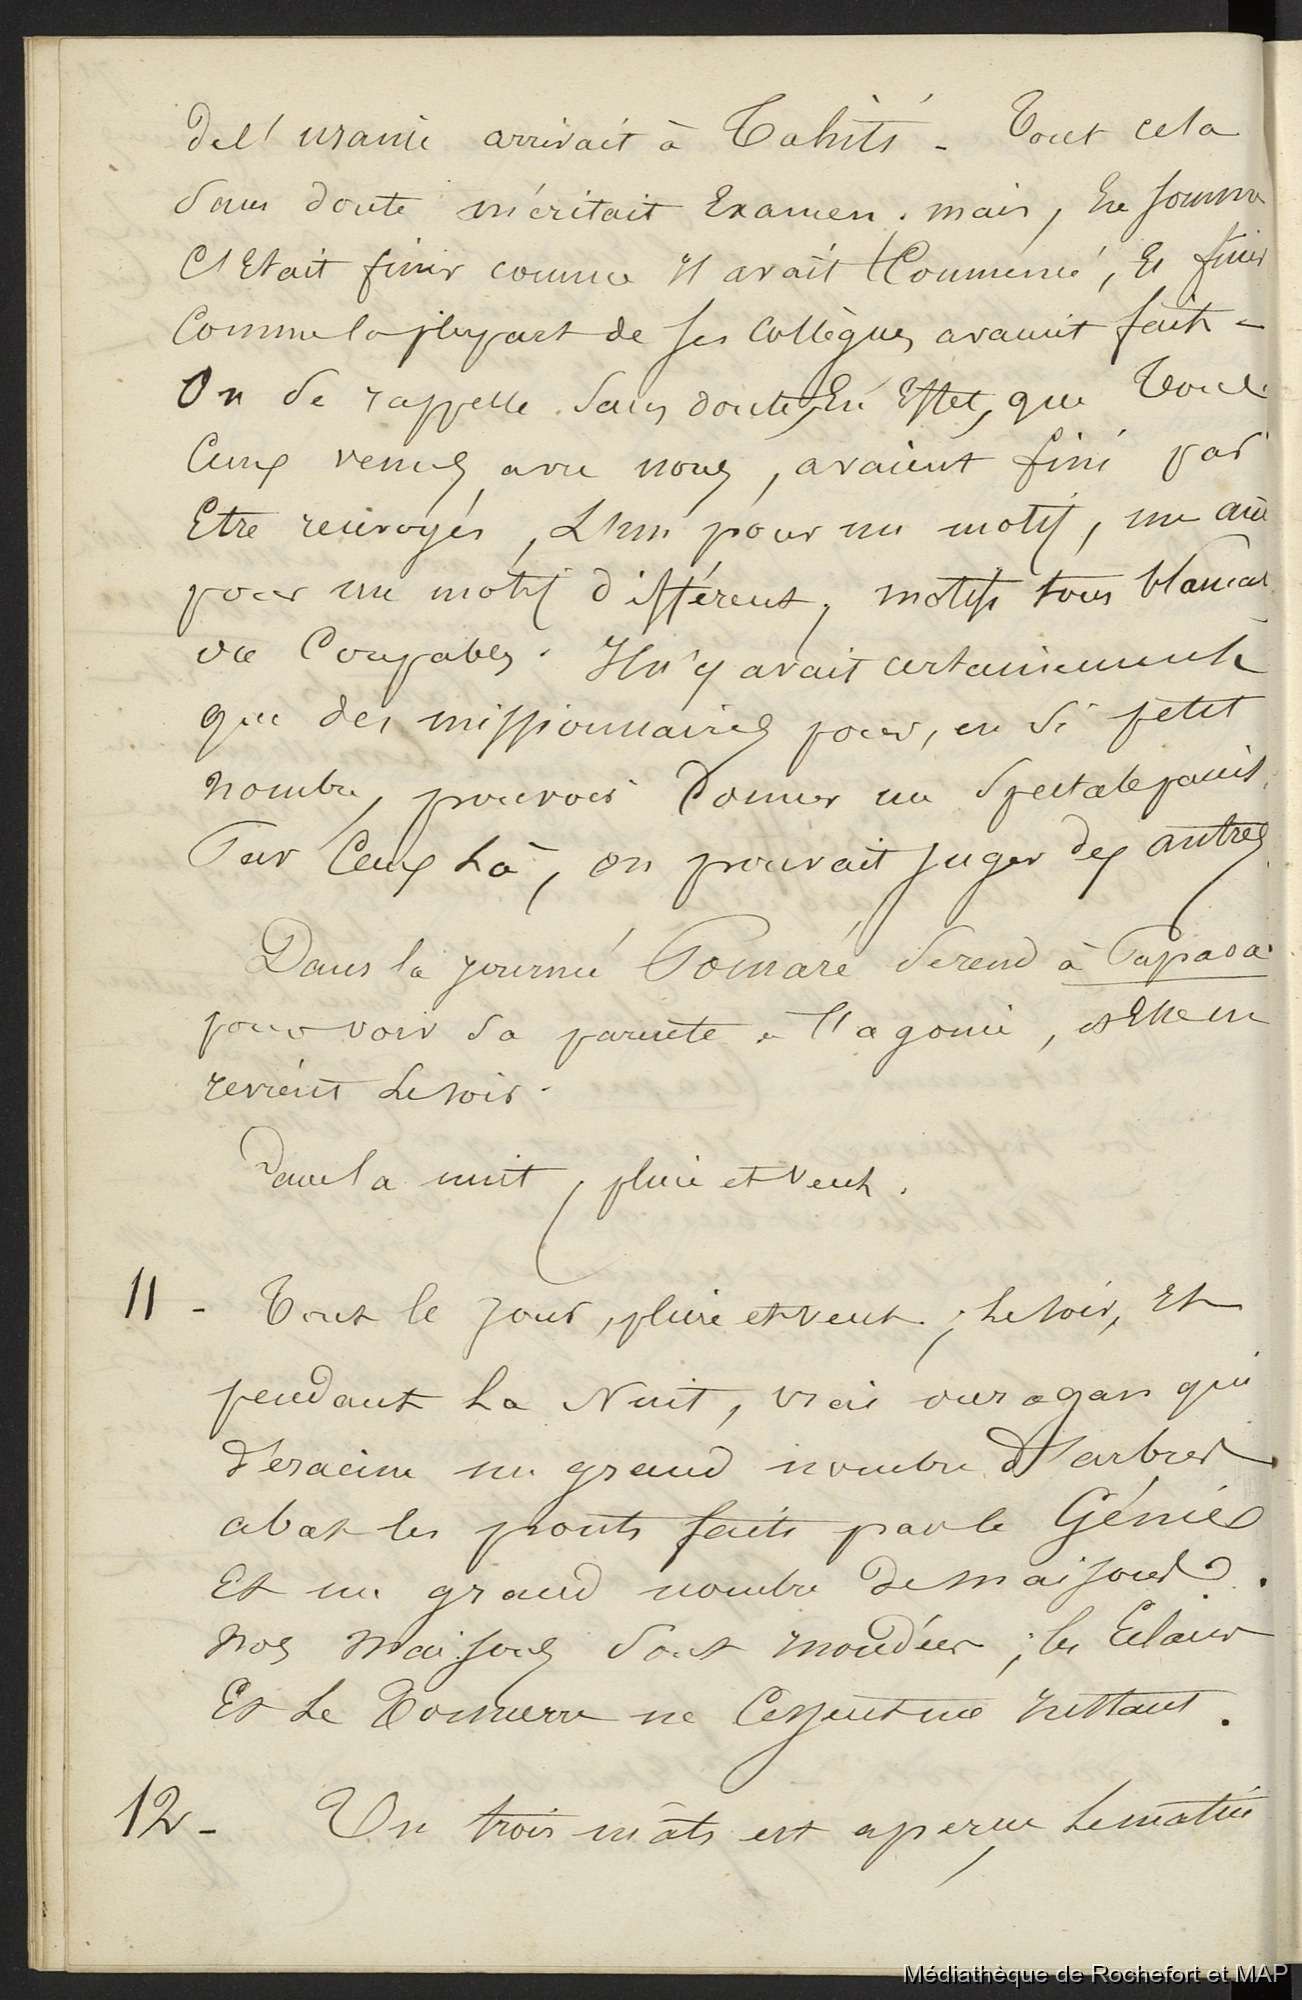 de l'uranie arrivait à Tahiti - Tout cela
sans doute méritait Examen. mais, En somme
C'Etait finir comme il avait Commencé, Et finir
Comme la plupart de ses collègues avaient fait -
On se rappelle sans doute, En Effet, que Tous
Ceux venus avec nous, avaient fini par
Etre renvoyés, L'un pour un motif, un autre
pour un motif différent, motifs tous blamables
ou Coupables. Il n'y avait certainement
que des missionnaires pour, en si petit
nombre, pouvoir Donner un spectacle pareil.
Par Ceux Là, on pouvait juger des autres
Dans la journée Pomaré se rend à Papaoa
pour voir sa parente à l'agonie, et Elle en
revient le soir.
Dans la nuit, pluie et vent.
11 - Tout le jour, pluie et vent; Le soir, Et
pendant La Nuit, vrai ouragan qui
déracine un grand nombre d'arbres
abat les ponts faits par le Génie
Et un grand nombre de maisons.
Nos Maisons sont inondées; les Eclairs
Et Le Tonnerre ne Cessent un instant.
12 - Un trois mâts est aperçu Le matin
Médiathèque de Rochefort et MAP